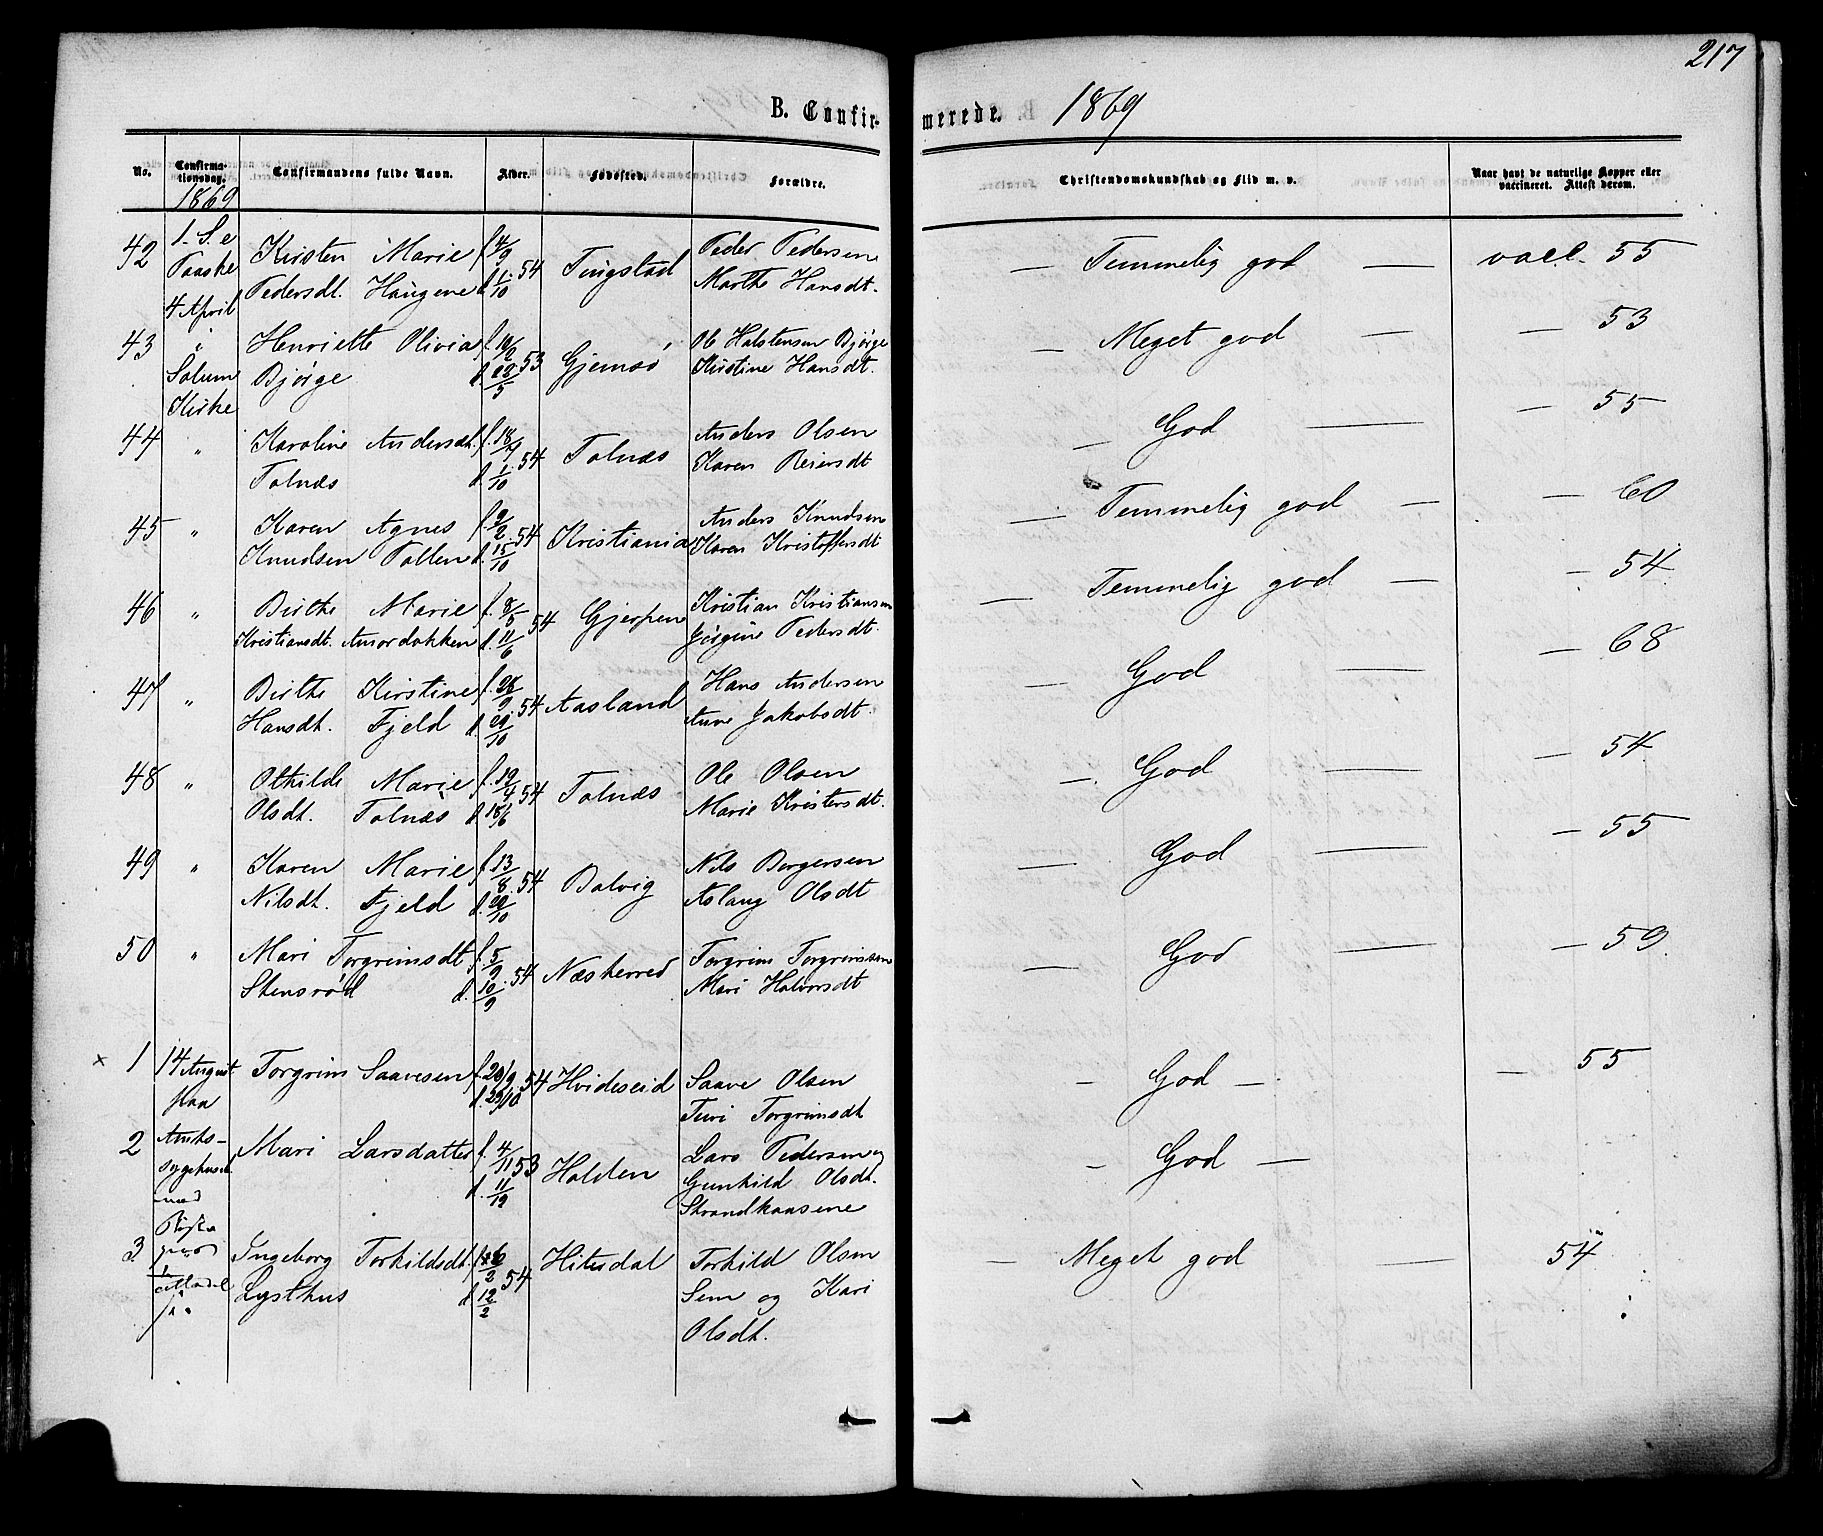 217
B. Confirmerede. 1869
No. Confirmationsdag. Confirmandens fulde Navn. Alder. Fødested. Forældre. Christendomskundskab og Flid m. v. Naar havt de naturlige Kopper eller vaccineret. Attest derom.
1869
42 1. S. e Kirsten Marie f. 4/9 Peder Pedersen — Temmelig god — vacc. 55
Paaske Pedersdt. Haugene d. 1/10 54 Tingstad Marthe Hansdt.
4 April
43 " Henriette Olivia f. 19/2 53 Gjemsö Ole Halstensen Bjørge — Meget god — — 53
Solum Bjørge d. 22/5 Kirstine Hansdt.
Kirke
44 " Karoline Andersdt. f. 18/9 54 Tolnæs Anders Olsen — God — — 55
Tolnæs d. 1/10 Karen Reiersdt
45 " Karen Agnes f. 9/2 54 Kristiania Anders Knudsen — Temmelig god — — 60
Knudsen Tollen d. 15/10 Karen Kristoffersdt
46 " Birthe Marie f. 8/5 54 Gjerpen Kristian Kristiansen — Temmelig god — — 54
Kristiansdt. d. 11/6 Jörgine Pedersdt.
47 " Birthe Kirstine f. 28/9 54 Aasland Hans Andersen — God — — 68
Hansdt. Fjeld d. 29/10 Anne Jakobsdt.
48 " Othilde Marie f. 19/4 54 Tolnæs Ole Olsen — God — — 54
Olsdt. Tolnæs d. 18/6 Marie Kristersdt.
49 " Karen Marie f. 13/8 54 Bolvig Nils Borgersen — God — — 55
Nilsdt. Fjeld d. 29/10 Aslaug Olsdt
50 " Mari Torgrimsdt f. 5/9 54 Næsherred Torgrim Torgrimssen — God — — 59
Stensrød d. 10/9 Mari Halvorsdt
x 1 14 August Torgrim Saavesen f. 20/9 54 Hvideseid Saave Olsen — God — — 55
paa d. 29/10 Turi Torgrimsdt
2 Amts- Mari Larsdatter f. 4/11 53 Holden Lars Pedersen og — God —
sygehuset d. 11/12 Gunhild Olsdt.
med Strandkaasene
3 Ingeborg Torkildsdt. 54 Hitesdal Torkild Olsen — Meget god — 54
Lysthus d. 12/2 Sem og Kari
Olsdt.